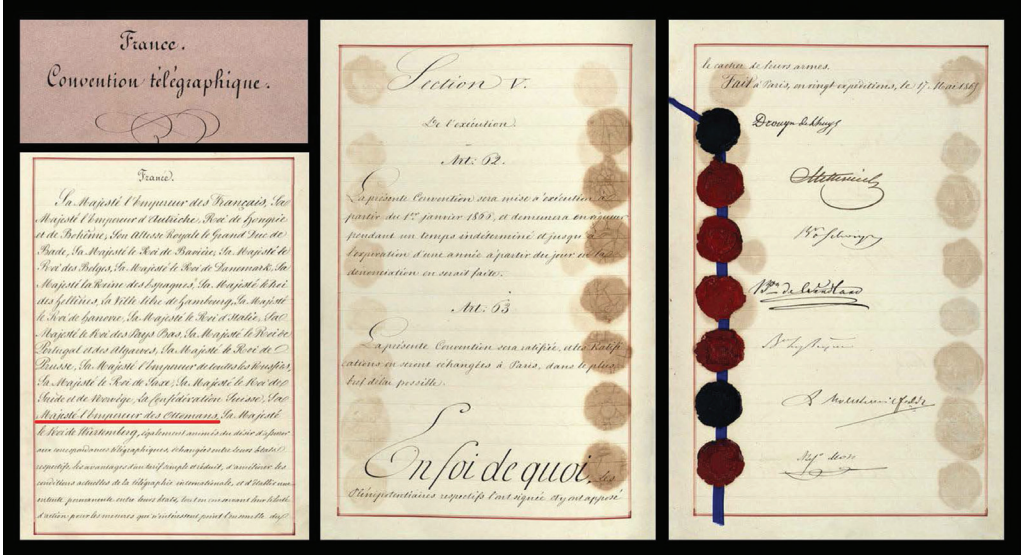 France.
Convention télégraphique.
France.
Sa Majesté l'Empereur des Français, Sa
Majesté l'Empereur d'Autriche, Roi de Hongrie
et de Bohême, Son Altesse Royale le Grand Duc de
Bade, Sa Majesté le Roi de Bavière, Sa Majesté le
Roi des Belges, Sa Majesté le Roi de Danemark, Sa
Majesté la Reine des Espagnes, Sa Majesté le Roi
des Hellènes, la Ville libre de Hambourg, Sa Majesté
le Roi de Hanovre, Sa Majesté le Roi d'Italie, Sa
Majesté le Roi des Pays Bas, Sa Majesté le Roi de
Portugal et des Algarves, Sa Majesté le Roi de
Prusse, Sa Majesté l'Empereur de toutes les Russies,
Sa Majesté le Roi de Saxe, Sa Majesté le Roi de
Suède et de Norvège, la Confédération Suisse, Sa
Majesté l'Empereur des Ottomans, Sa Majesté
le Roi de Wurtemberg, également animés du désir d'assurer
aux correspondances télégraphiques échangées entre leurs États
respectifs, les avantages d'un tarif simple et réduit, d'améliorer les
conditions actuelles de la télégraphie internationale, et d'établir une
entente permanente entre leurs États, tout en conservant leur liberté
d'action pour les mesures qui n'intéressent point l'ensemble du
Section V.
De l'exécution.
Art: 62.
La présente Convention sera mise à exécution à
partir du 1er janvier 1866, et demeurera en vigueur
pendant un temps indéterminé et jusqu'à
l'expiration d'une année à partir du jour où la
dénonciation en serait faite.
Art: 63
La présente Convention sera ratifiée, et les Ratifi-
cations en seront échangées à Paris, dans le plus
bref délai possible.
En foi de quoi, les
Plénipotentiaires respectifs l'ont signée et y ont apposé
le cachet de leurs armes.
Fait à Paris, en vingt expéditions, le 17 Mai 1865
Drouyn de Lhuys
Metternich